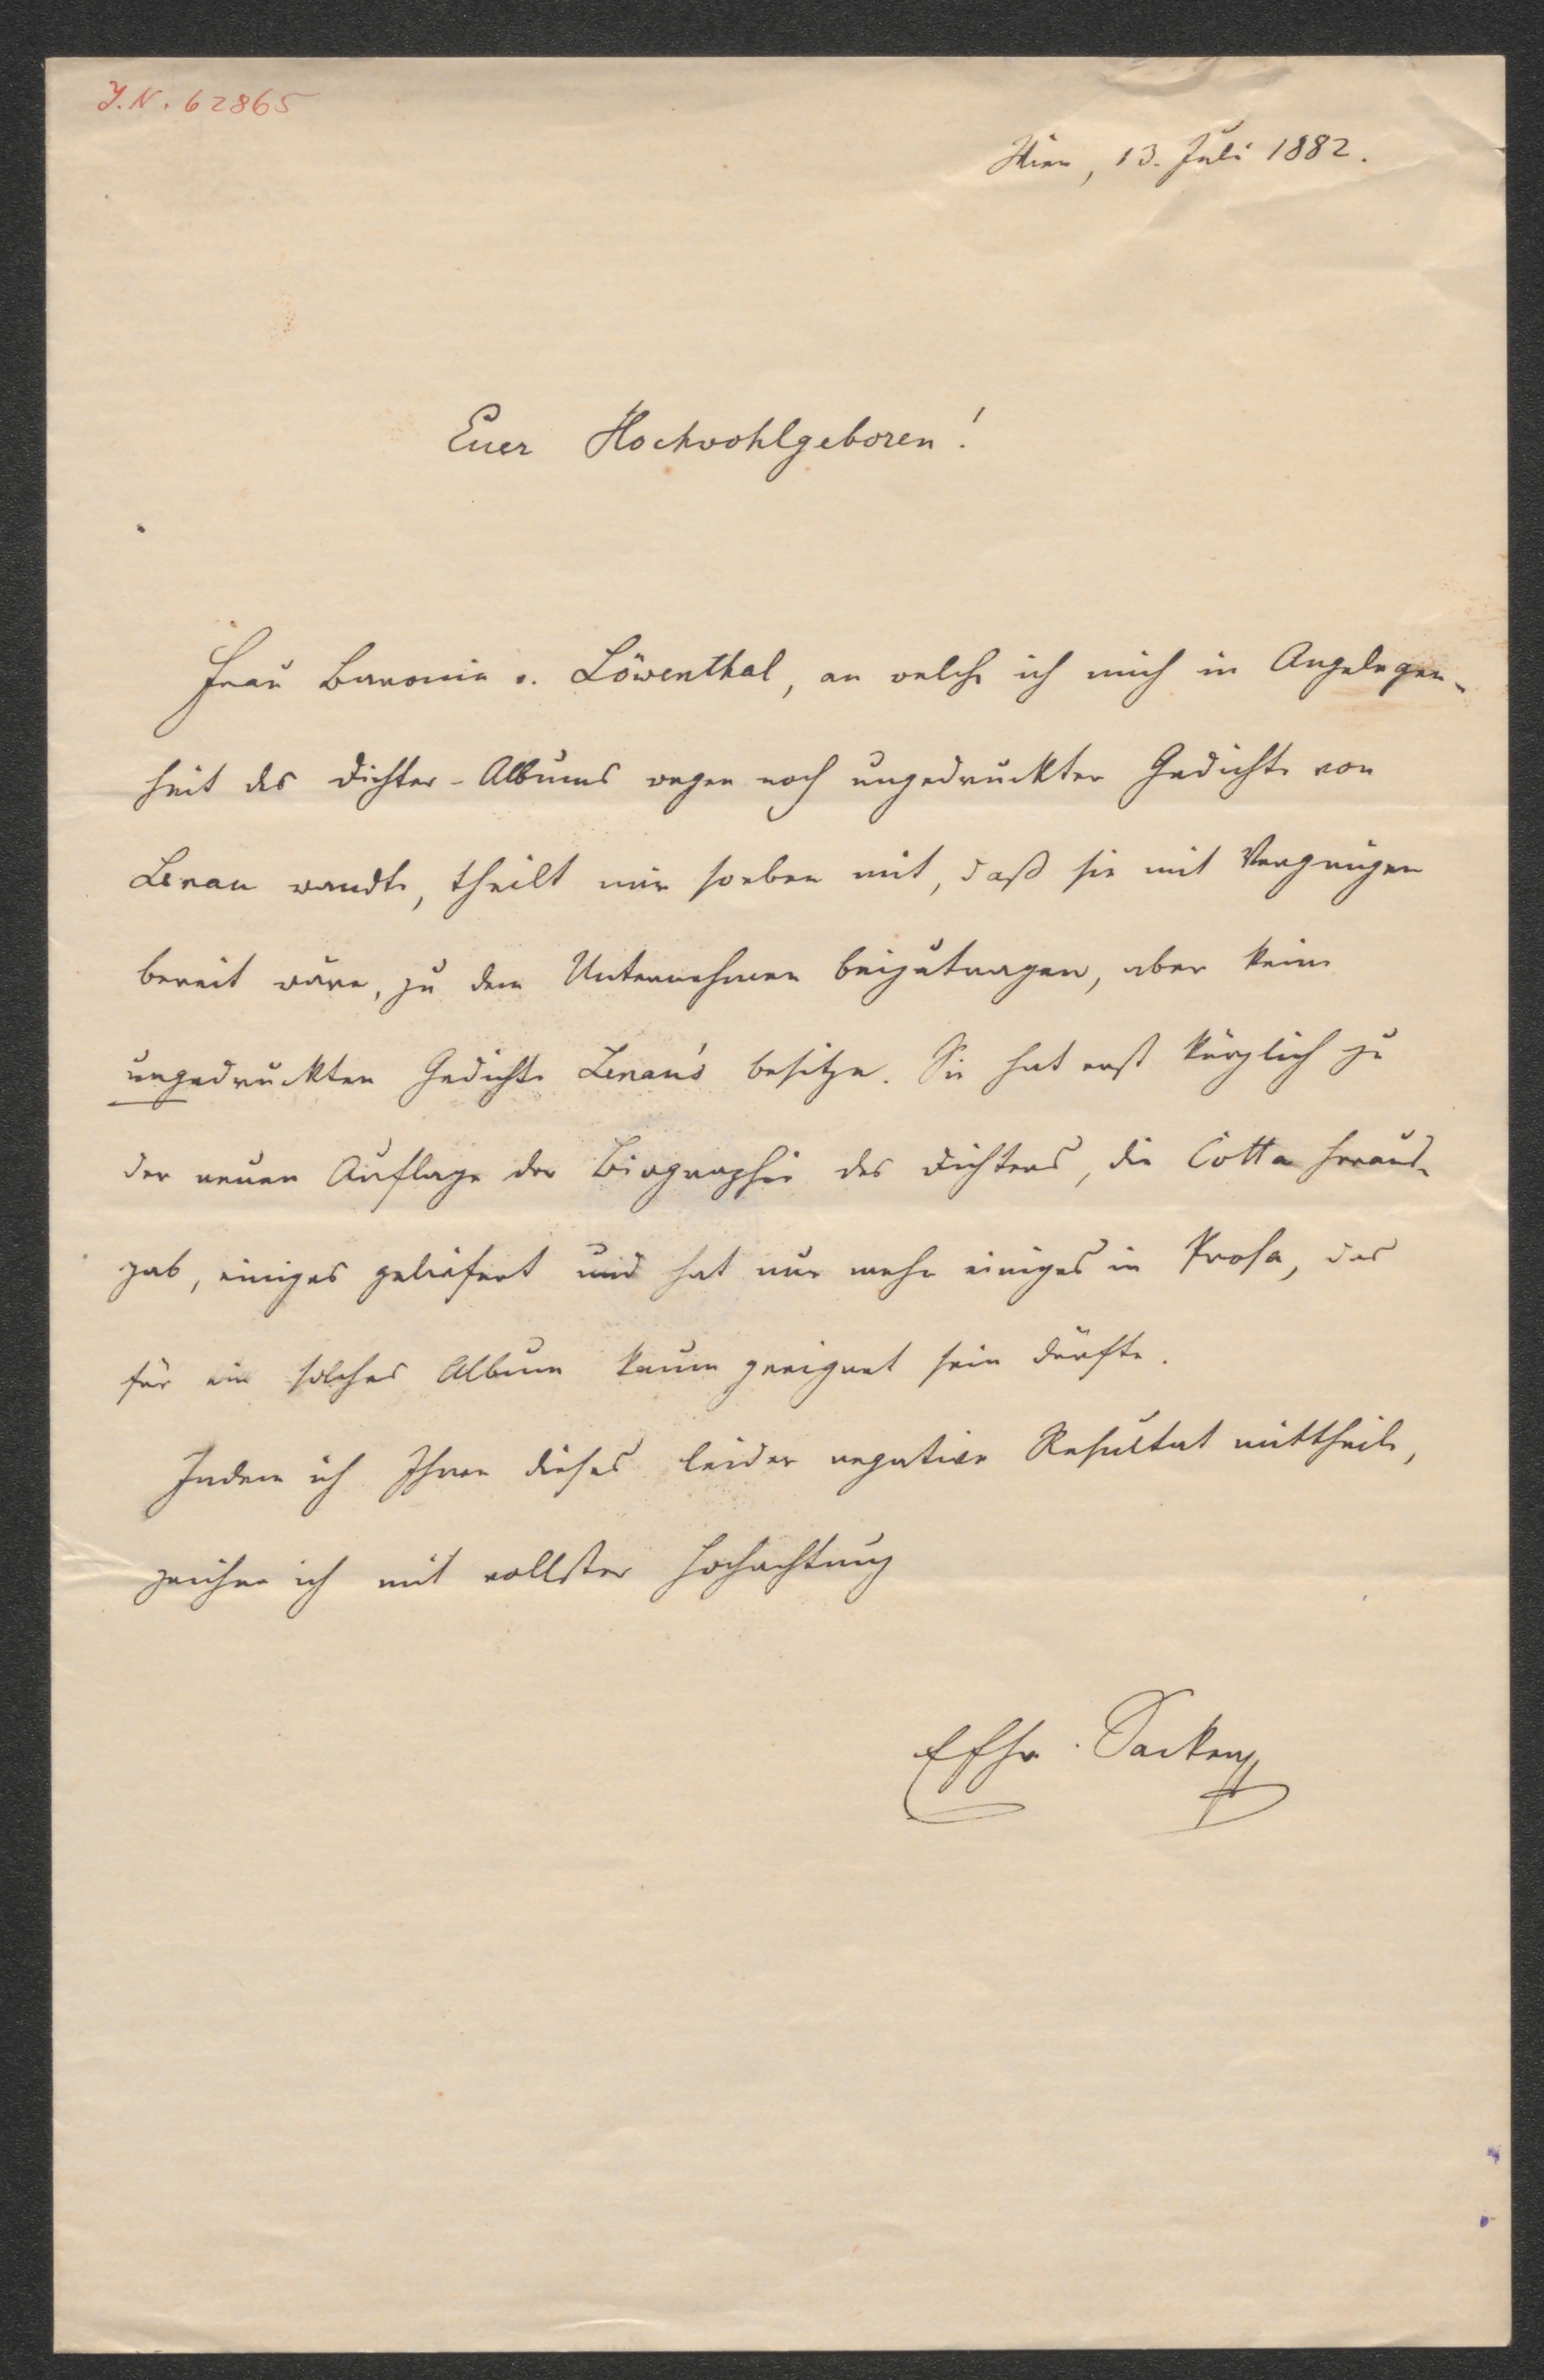 J.N. 62865
Wien, 13. Juli 1882.
Euer Hochwohlgeboren!
Frau Baronin v. Löwenthal, an welche ich mich in Angelegen-
heit des Dichter-Albums wegen noch ungedruckter Gedichte von
Lenau wandte, theilt mir soeben mit, daß sie mit Vergnügen
bereit wäre, zu dem Unternehmen beizutragen, aber keine
ungedruckten Gedichte Lenau's besitze. Sie hat erst kürzlich zu
der neuen Auflage der Biographie des Dichters, die Cotta heraus-
gab, einiges geliefert und hat nur mehr einiges in Prosa, das
für ein solches Album kaum geeignet sein dürfte.
Indem ich Ihnen dieses leider negative Resultat mittheile,
zeichne ich mit vollster Hochachtung
EFhr. Sacken